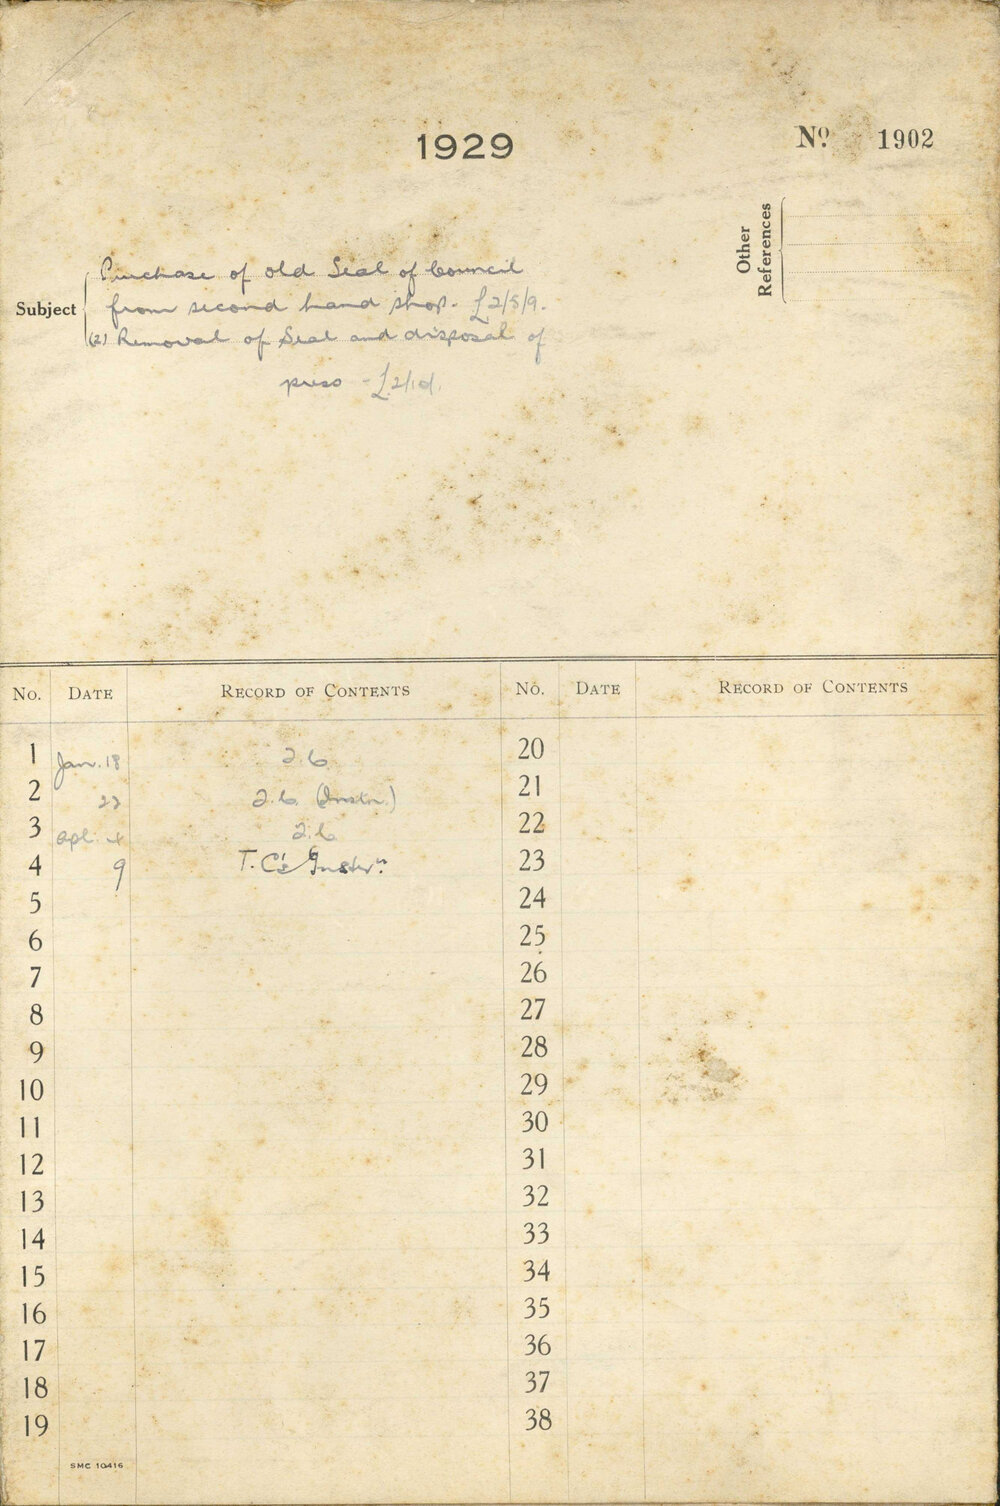 1929
Nº 1902
Other
References
Subject
Purchase of old Seal of Council
from second hand shop. £2/5/9.
(2) Removal of Seal and disposal of
press - £2/1d.
No. DATE RECORD OF CONTENTS
1 Jan. 18
2 23 (Instn.)
3 Apl. 4
4 9 T.C's Instrn.
5
6
7
8
9
10
11
12
13
14
15
16
17
18
19
SMC 10416
No. DATE RECORD OF CONTENTS
20
21
22
23
24
25
26
27
28
29
30
31
32
33
34
35
36
37
38